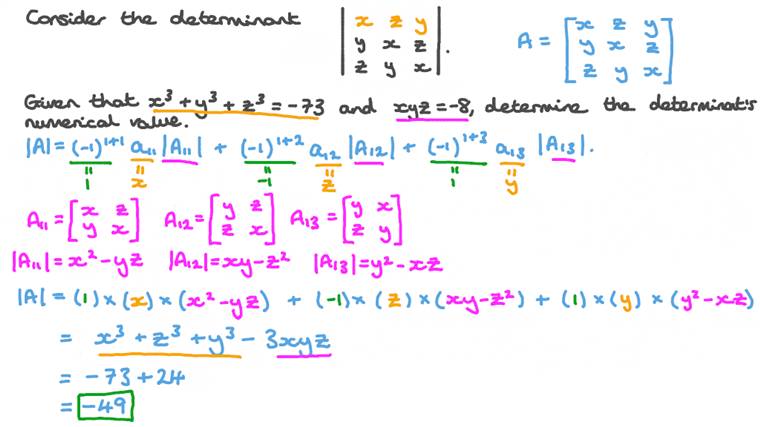 Consider the determinant | x z y | . A = [ x z y ]
| y x z | [ y x z ]
| z y x | [ z y x ]
Given that x³ + y³ + z³ = -73 and xyz = -8, determine the determinant's
numerical value.
|A| = (-1)¹⁺¹ a₁₁ |A₁₁| + (-1)¹⁺² a₁₂ |A₁₂| + (-1)¹⁺³ a₁₃ |A₁₃|.
= = = = = =
1 x -1 z 1 y
A₁₁ = [ x z ] A₁₂ = [ y z ] A₁₃ = [ y x ]
[ y x ] [ z x ] [ z y ]
|A₁₁| = x² - yz |A₁₂| = xy - z² |A₁₃| = y² - xz
|A| = (1) × (x) × (x² - yz) + (-1) × (z) × (xy - z²) + (1) × (y) × (y² - xz)
= x³ + z³ + y³ - 3xyz
= -73 + 24
= -49